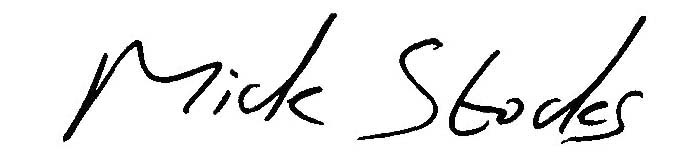 Mick Stocks